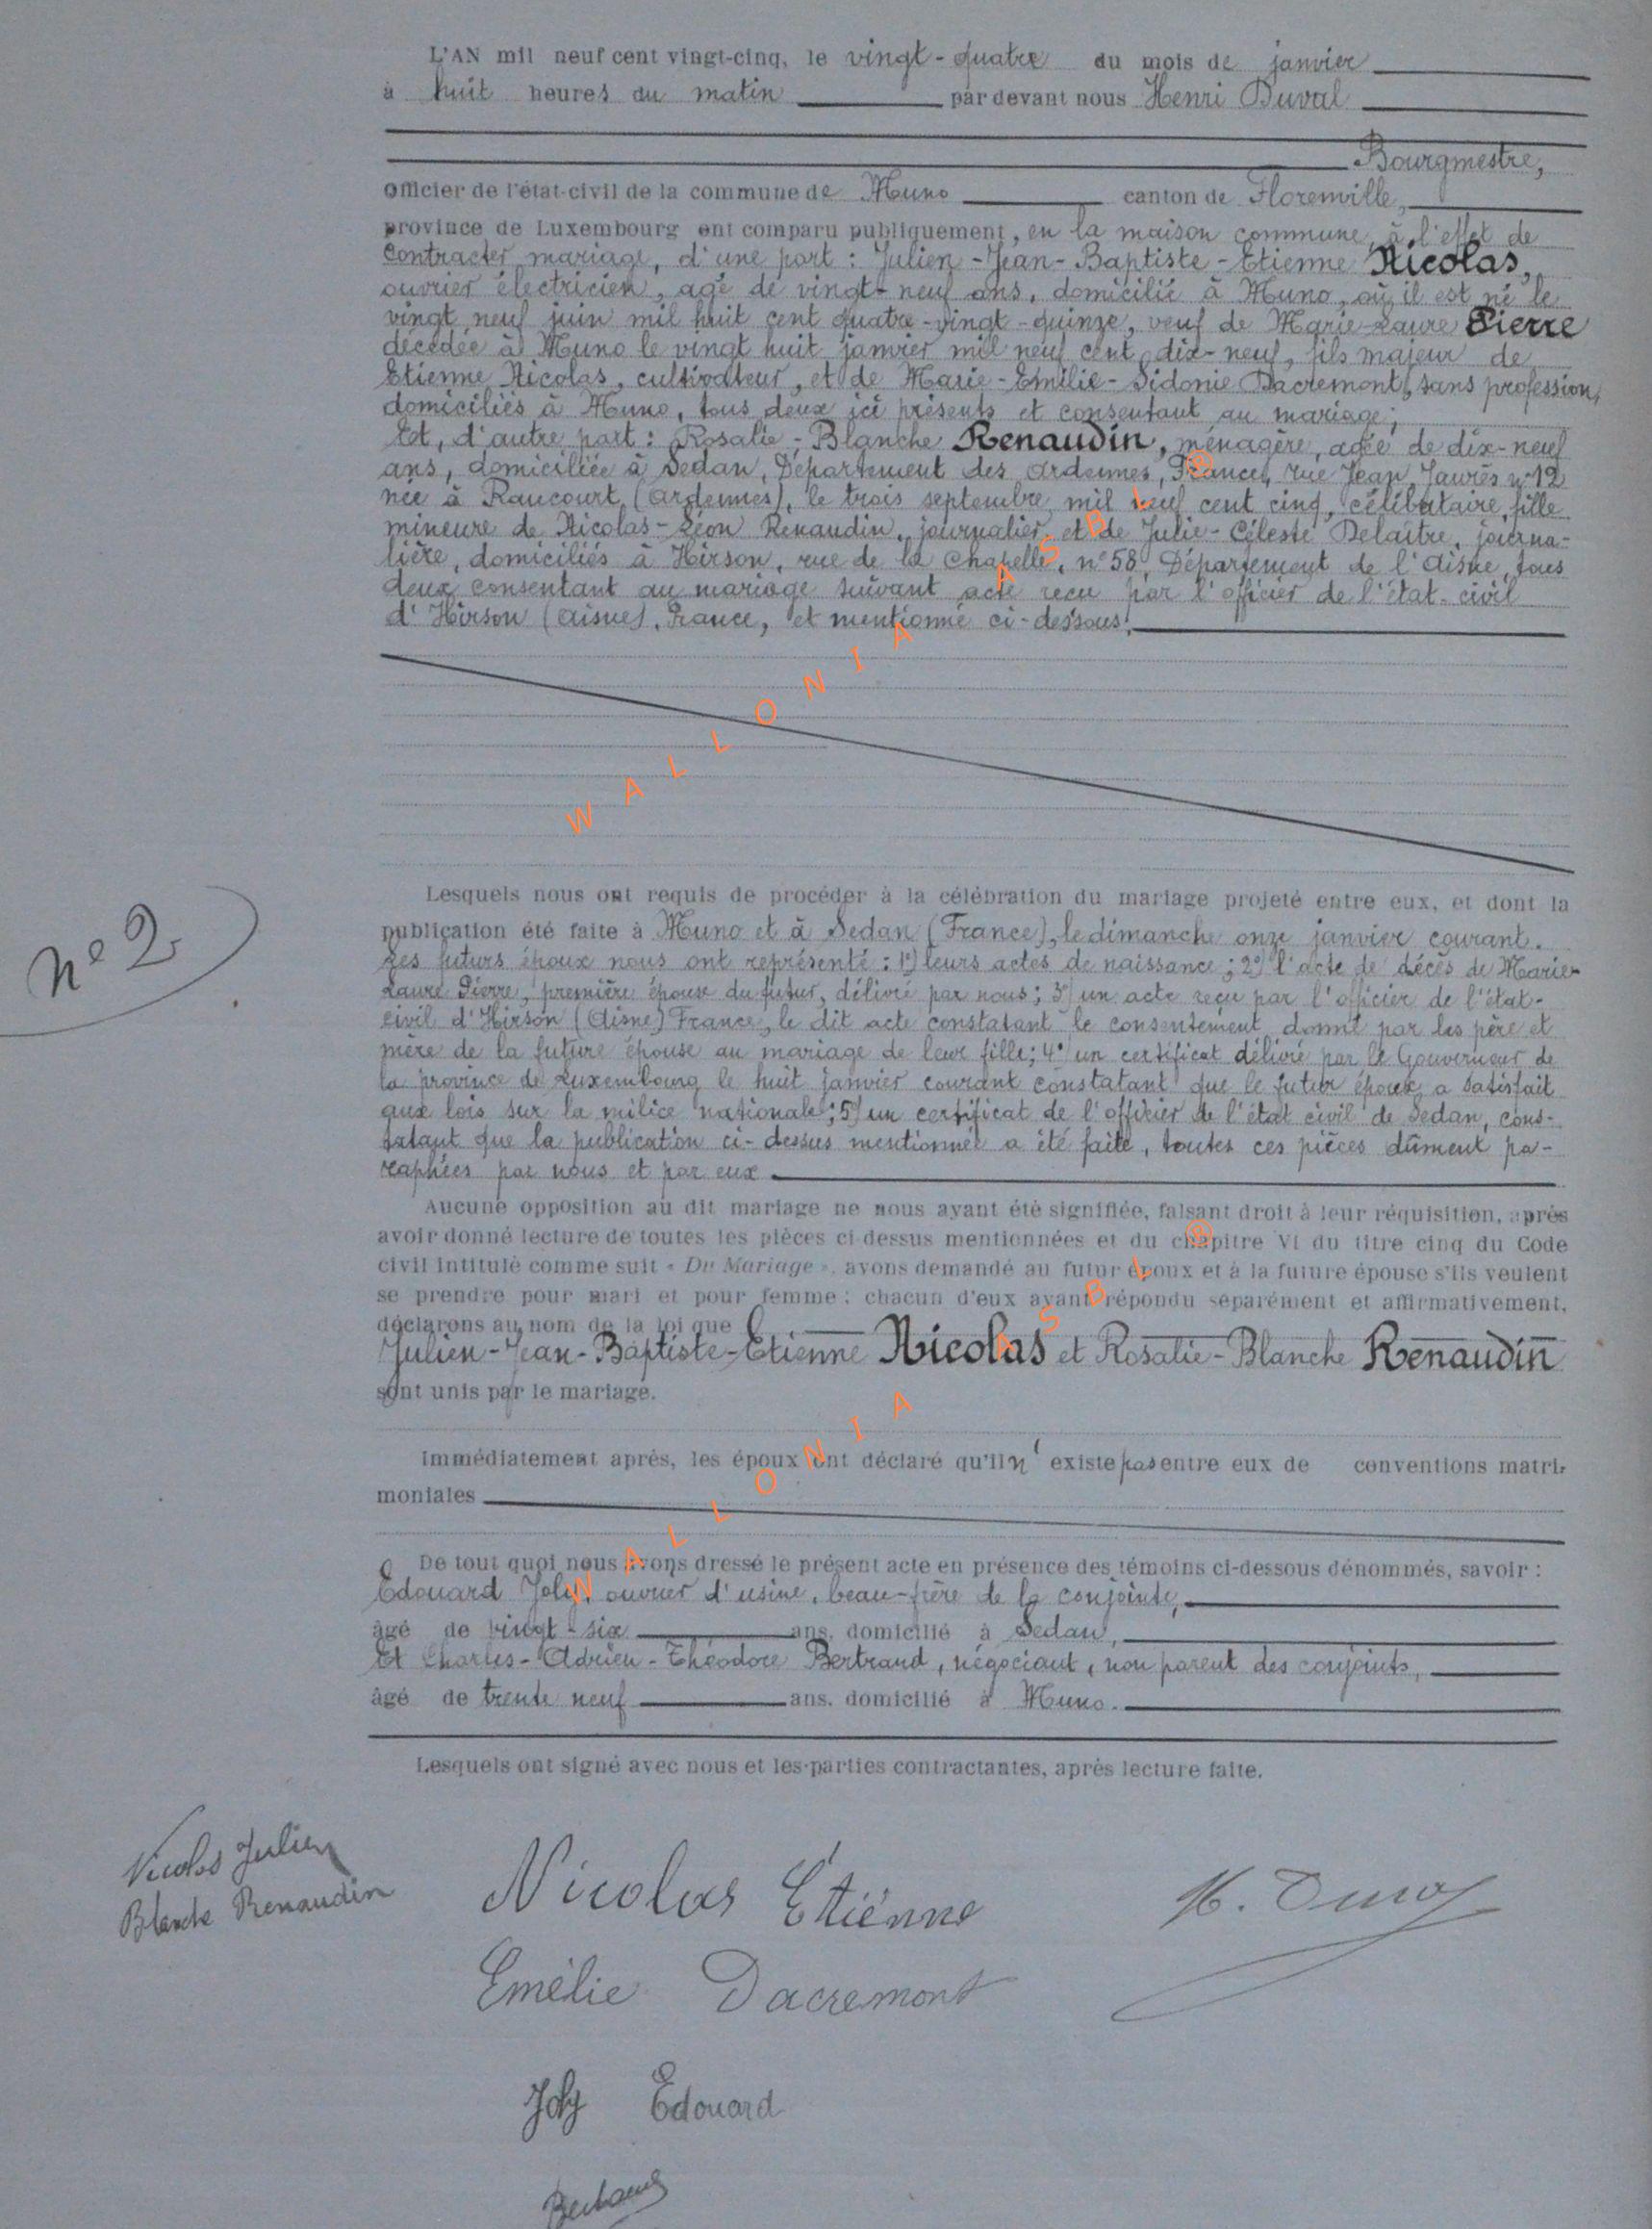 L'AN mil neuf cent vingt-cinq, le vingt-quatre du mois de janvier
à huit heures du matin par devant nous Henri Duval
Bourgmestre,
officier de l'état-civil de la commune de Muno canton de Florenville,
province de Luxembourg ont comparu publiquement, en la maison commune, à l'effet de
contracter mariage, d'une part : Julien-Jean-Baptiste-Etienne Nicolas,
ouvrier électricien, agé de vingt-neuf ans, domicilié à Muno, où il est né le
vingt neuf juin mil huit cent quatre-vingt-quinze, veuf de Marie-Laure Pierre
décédée à Muno le vingt huit janvier mil neuf cent dix-neuf, fils majeur de
Etienne Nicolas, cultivateur, et de Marie-Emilie-Sidonie Dacremont, sans profession,
domiciliés à Muno, tous deux ici présents et consentant au mariage ;
Et, d'autre part : Rosalie-Blanche Renaudin, ménagère, agée de dix-neuf
ans, domiciliée à Sedan, Département des Ardennes, France, rue Jean Jaurès n°12
née à Raucourt (Ardennes), le trois septembre mil neuf cent cinq, célibataire, fille
mineure de Nicolas-Léon Renaudin, journalier, et de Julie-Céleste Delaître, journa-
lière, domiciliés à Hirson, rue de la Chapelle, n°58, Département de l'Aisne, tous
deux consentant au mariage suivant acte reçu par l'officier de l'état-civil
d'Hirson (Aisne), France, et mentionné ci-dessous.
WALLONIA ASBL ®
Lesquels nous ont requis de procéder à la célébration du mariage projeté entre eux, et dont la
publication été faite à Muno et à Sedan (France), le dimanche onze janvier courant.
Les futurs époux nous ont représenté : 1°) leurs actes de naissance ; 2°) l'acte de décès de Marie-
Laure Pierre, première épouse du futur, délivré par nous ; 3°) un acte reçu par l'officier de l'état-
civil d'Hirson (Aisne) France, le dit acte constatant le consentement donné par les père et
mère de la future épouse au mariage de leur fille ; 4°) un certificat délivré par le Gouverneur de
la province de Luxembourg le huit janvier courant constatant que le futur époux a satisfait
aux lois sur la milice nationale ; 5°) un certificat de l'officier de l'état civil de Sedan, cons-
tatant que la publication ci-dessus mentionnée a été faite, toutes ces pièces dûment pa-
raphées par nous et par eux
n° 2
Aucune opposition au dit mariage ne nous ayant été signifiée, faisant droit à leur réquisition, après
avoir donné lecture de toutes les pièces ci-dessus mentionnées et du chapitre VI du titre cinq du Code
civil intitulé comme suit « Du Mariage », avons demandé au futur époux et à la future épouse s'ils veulent
se prendre pour mari et pour femme : chacun d'eux ayant répondu séparément et affirmativement,
déclarons au nom de la loi que
Julien-Jean-Baptiste-Etienne Nicolas et Rosalie-Blanche Renaudin
sont unis par le mariage.
Immédiatement après, les époux ont déclaré qu'il n'existe pas entre eux de conventions matri-
moniales
WALLONIA ASBL ®
De tout quoi nous avons dressé le présent acte en présence des témoins ci-dessous dénommés, savoir :
Edouard Joly, ouvrier d'usine, beau-frère de la conjointe,
âgé de vingt-six ans, domicilié à Sedan,
Et Charles-Adrien-Théodore Bertrand, négociant, non parent des conjoints,
âgé de trente neuf ans, domicilié à Muno.
Lesquels ont signé avec nous et les parties contractantes, après lecture faite.
Nicolas Julien
Blanche Renaudin
Nicolas Étienne
H. Duval
Emélie Dacremont
Joly Edouard
Bertrand